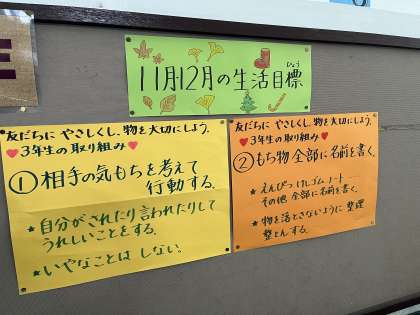 11月12月の生活目標
ひょう
友だちに やさしくし、物を大切にしよう。
♥3年生の取り組み♥
①相手の気もちを考えて
行動する。
★自分がされたり言われたりして
うれしいことをする。
★いやなことは しない。
友だちに やさしくし、物を大切にしよう。
♥3年生の取り組み♥
②もち物全部に名前を書く。
★えんぴつ けしゴム ノート
その他 全部に名前を書く。
★物を落とさないように 整理
整とんする。